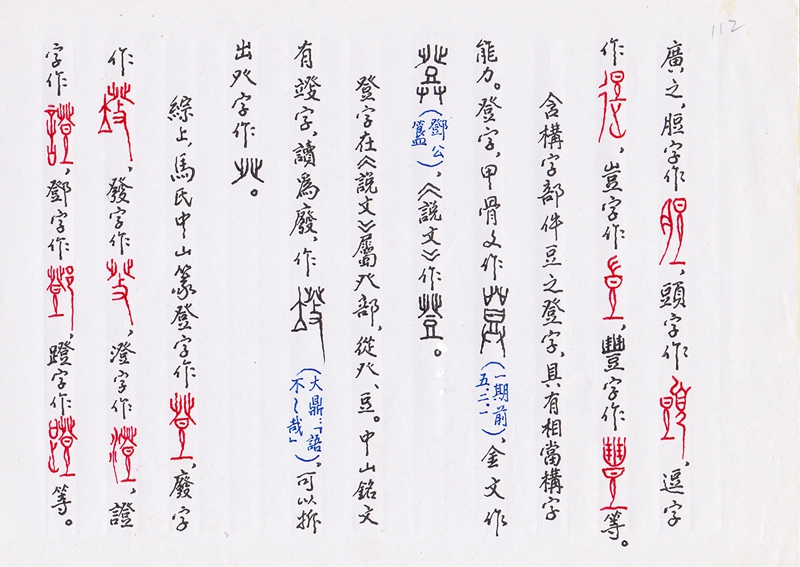 112
廣之，脰字作，頭字作，逗字
作，豈字作，豐字作等。
含構字部件豆之登字，具有相當構字
能力。登字，甲骨文作（一期前五.二.一），金文作
（鄧公簋），《說文》作。
登字在《說文》屬癶部，從癶、豆。中山銘文
有癹字，讀為廢，作（大鼎：「語不~哉」），可以拆
出癶字作。
綜上，馬氏中山篆登字作，廢字
作，發字作，澄字作，證
字作，鄧字作，蹬字作等。